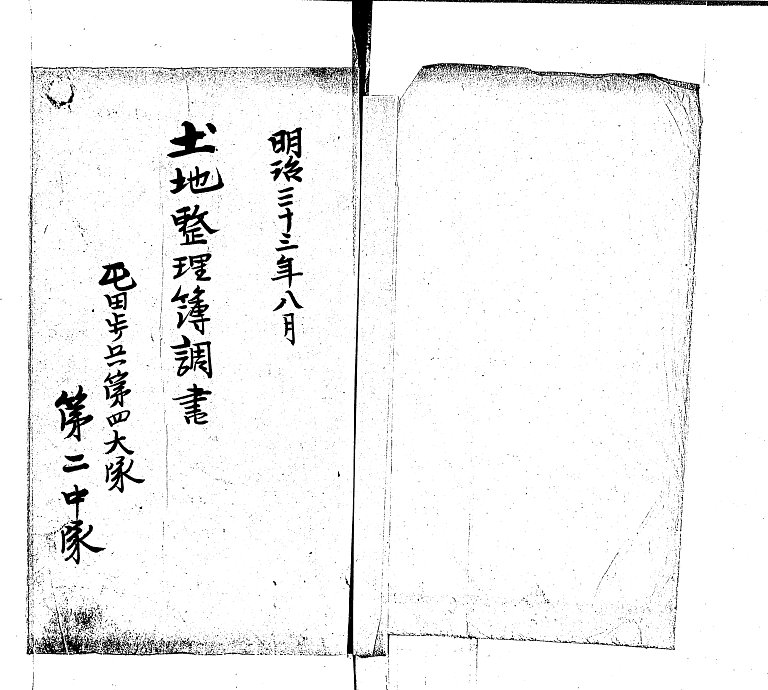 明治三十三年八月
土地整理簿調書
屯田歩兵第四大隊
第二中隊